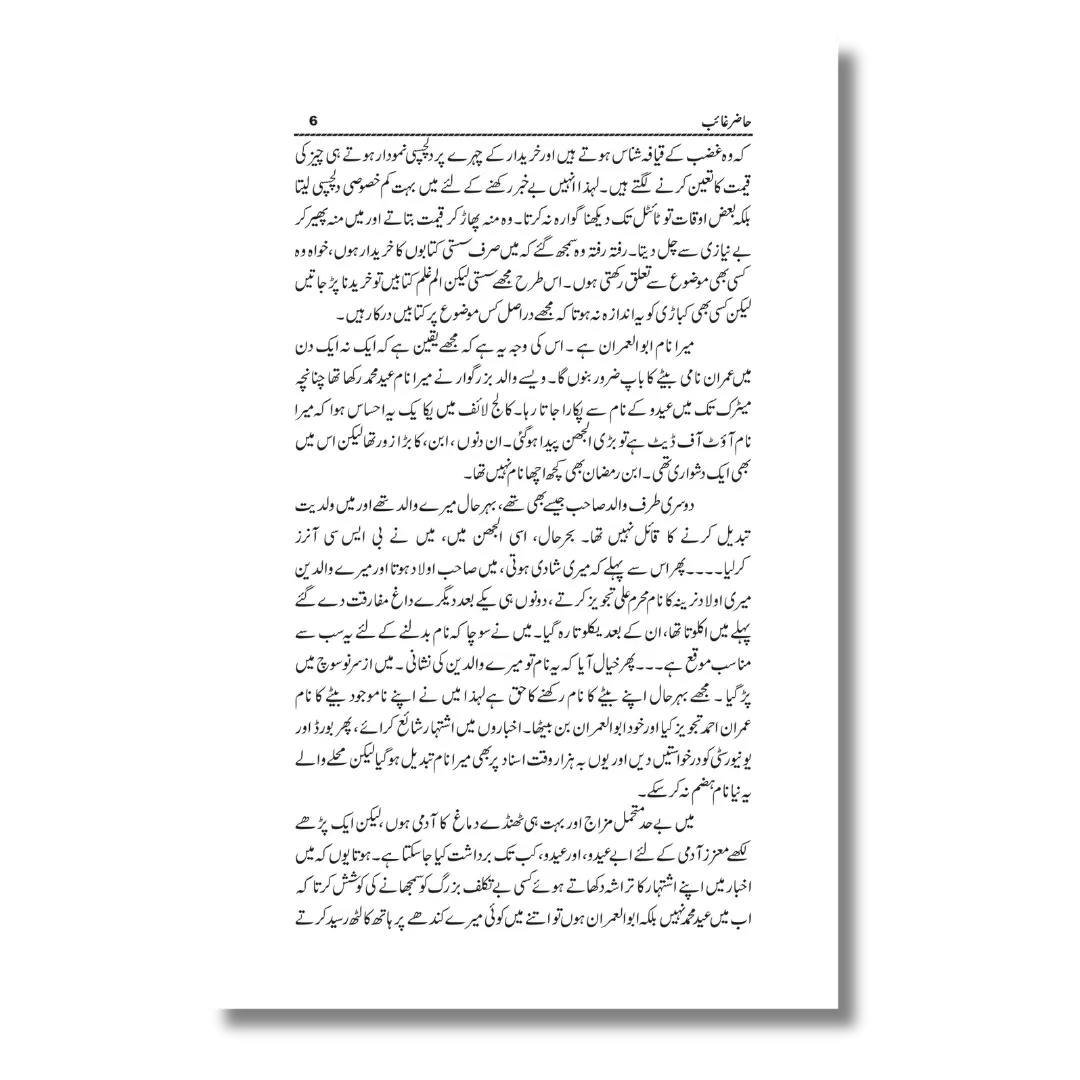 حاضر غائب 6
کہ وہ غضب کے قیافہ شناس ہوتے ہیں اور خریدار کے چہرے پر دلچسپی نمودار ہوتے ہی چیز کی
قیمت کا تعین کرنے لگتے ہیں۔ لہذا انہیں بے خبر رکھنے کے لئے میں بہت کم خصوصی دلچسپی لیتا
بلکہ بعض اوقات تو ٹائٹل تک دیکھنا گوارہ نہ کرتا۔ وہ منہ پھاڑ کر قیمت بتاتے اور میں منہ پھیر کر
بے نیازی سے چل دیتا۔ رفتہ رفتہ وہ سمجھ گئے کہ میں صرف سستی کتابوں کا خریدار ہوں، خواہ وہ
کسی بھی موضوع سے تعلق رکھتی ہوں۔ اس طرح مجھے سستی لیکن الم غلم کتابیں تو خریدنا پڑ جاتیں
لیکن کسی بھی کباڑی کو یہ اندازہ نہ ہوتا کہ مجھے دراصل کس موضوع پر کتابیں درکار ہیں۔
میرا نام ابوالعمران ہے ۔ اس کی وجہ یہ ہے کہ مجھے یقین ہے کہ ایک نہ ایک دن
میں عمران نامی بیٹے کا باپ ضرور بنوں گا۔ ویسے والد بزرگوار نے میرا نام عید محمد رکھا تھا چنانچہ
میٹرک تک میں عیدو کے نام سے پکارا جاتا رہا۔ کالج لائف میں یکا یک یہ احساس ہوا کہ میرا
نام آؤٹ آف ڈیٹ ہے تو بڑی الجھن پیدا ہوگئی۔ ان دنوں ، ابن، کا بڑا زور تھا لیکن اس میں
بھی ایک دشواری تھی۔ ابن رمضان بھی کچھ اچھا نام نہیں تھا۔
دوسری طرف والد صاحب جیسے بھی تھے، بہرحال میرے والد تھے اور میں ولدیت
تبدیل کرنے کا قائل نہیں تھا۔ بحرحال، اسی الجھن میں، میں نے بی ایس سی آنرز
کرلیا۔۔۔۔ پھر اس سے پہلے کہ میری شادی ہوتی، میں صاحب اولاد ہوتا اور میرے والدین
میری اولاد نرینہ کا نام محرم علی تجویز کرتے، دونوں ہی یکے بعد دیگرے داغ مفارقت دے گئے
پہلے میں اکلوتا تھا، ان کے بعد یکلوتا رہ گیا۔ میں نے سوچا کہ نام بدلنے کے لئے یہ سب سے
مناسب موقع ہے۔۔۔ پھر خیال آیا کہ یہ نام تو میرے والدین کی نشانی ۔ میں از سر نو سوچ میں
پڑ گیا ۔ مجھے بہرحال اپنے بیٹے کا نام رکھنے کا حق ہے لہذا میں نے اپنے ناموجود بیٹے کا نام
عمران احمد تجویز کیا اور خود ابوالعمران بن بیٹھا۔ اخباروں میں اشتہار شائع کرائے، پھر بورڈ اور
یونیورسٹی کو درخواستیں دیں اور یوں بہ ہزار وقت اسناد پر بھی میرا نام تبدیل ہوگیا لیکن محلے والے
یہ نیا نام ہضم نہ کر سکے۔
میں بے حد متحمل مزاج اور بہت ہی ٹھنڈے دماغ کا آدمی ہوں ،لیکن ایک پڑھے
لکھے معزز آدمی کے لئے ابے عیدو، اور عیدو، کب تک برداشت کیا جاسکتا ہے۔ ہوتا یوں کہ میں
اخبار میں اپنے اشتہار کا تراشہ دکھاتے ہوئے کسی بے تکلف بزرگ کو سمجھانے کی کوشش کرتا کہ
اب میں عید محمد نہیں بلکہ ابوالعمران ہوں تو اتنے میں کوئی میرے کندھے پر ہاتھ کا لٹھ رسید کرتے